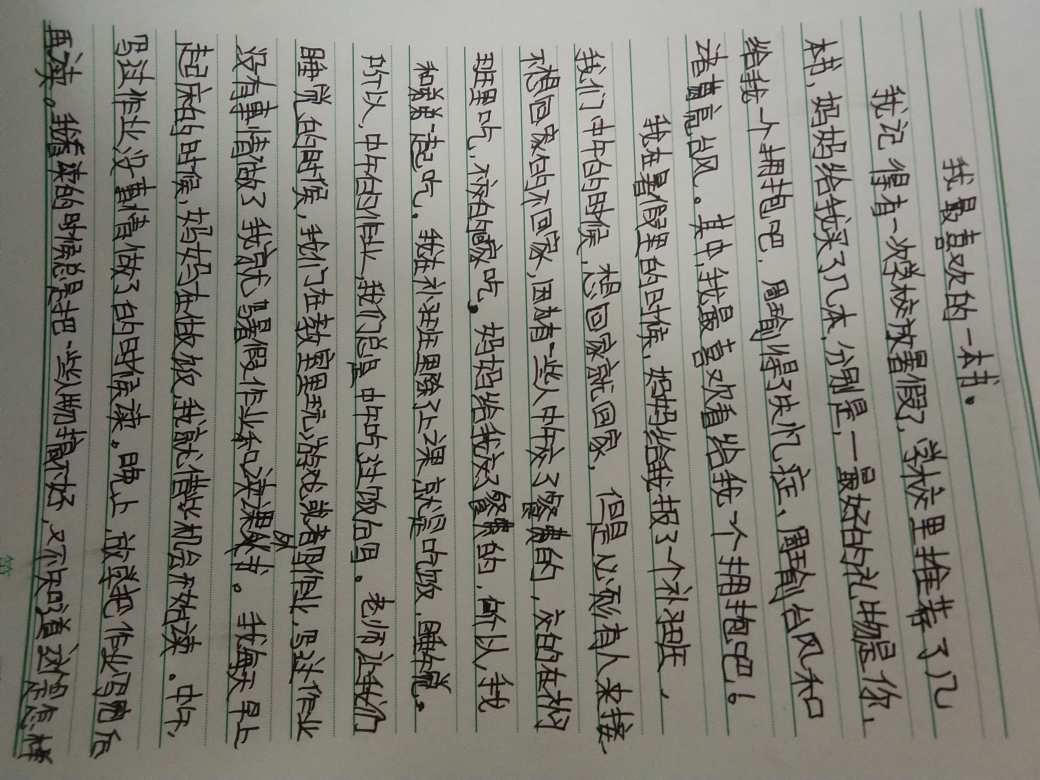 我最喜欢的一本书。
我记得有一次学校放暑假了,学校里推荐了几
本书,妈妈给我买了几本,分别是,最好的礼物是你、
给我一个拥抱吧、周瑜得了失忆症、周瑜台风和
诸葛亮台风。其中,我最喜欢看给我一个拥抱吧!
我在暑假里的时候,妈妈给我报了一个补习班,
我们中午的时候,想回家就回家,但是必须有人来接,
不想回家的不回家,因为有一些人中午交了餐费的,交的在补习
班里吃,不交的回家吃。妈妈给我交了餐费的,所以,我
和弟弟一起吃。我在补习班里除了上课,就是吃饭、睡觉。
所以,中午的作业,我们总是中午吃过饭后写。老师让我们
睡觉的时候,我们在教室里玩游戏或者写作业,写过作业
没有事情做了我就写暑假作业和读课外书。我每天早上
起床的时候,妈妈在做饭,我就借此机会开始读。中午,
写过作业没事情做了的时候读。晚上,放学把作业写完后
再读。我读的时候总是把一些人物搞不好,又不知道这个是怎样